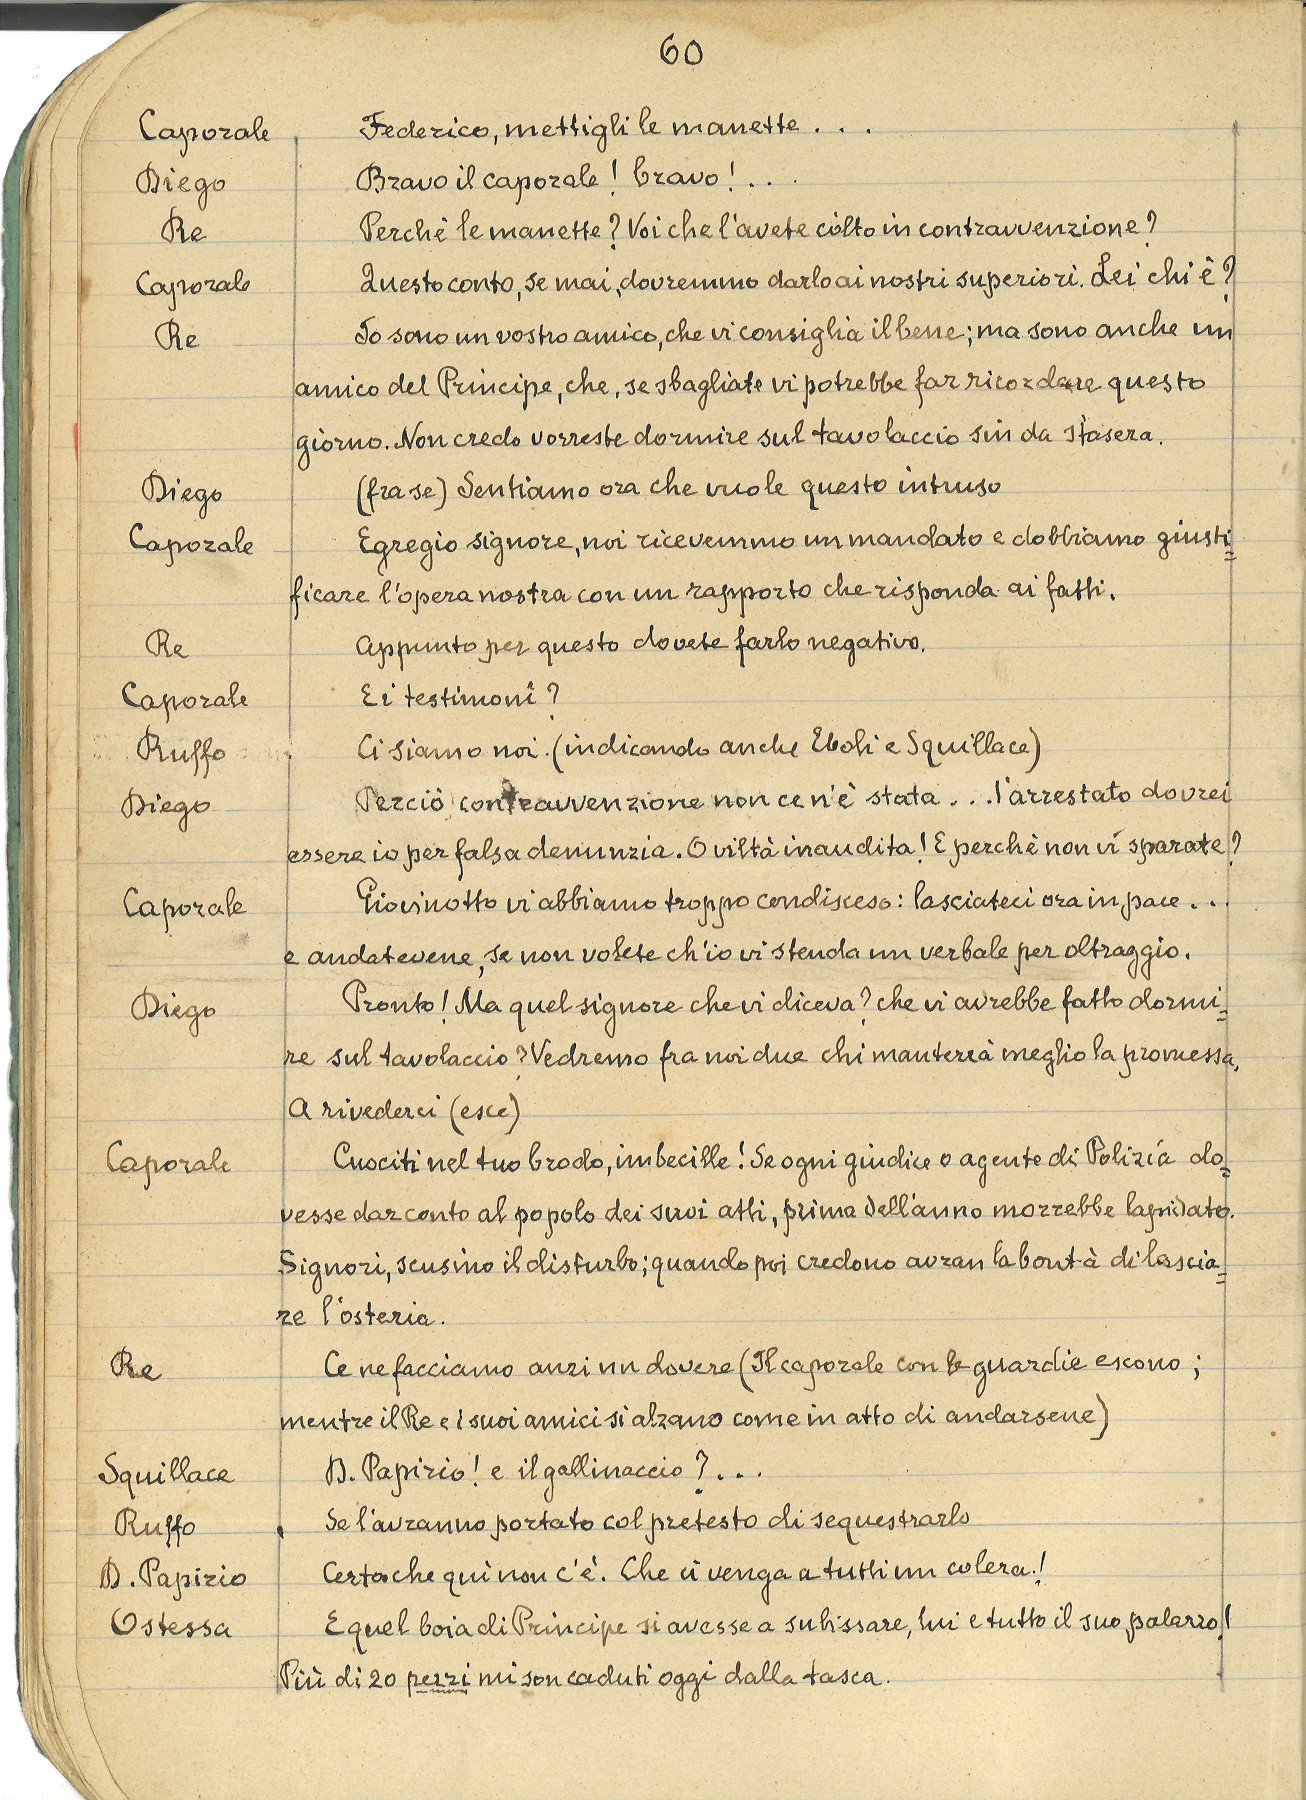 60
Caporale Federico, mettigli le manette . . .
Diego Bravo il caporale! bravo! . . .
Re Perchè le manette? Voi che l'avete còlto in contravvenzione?
Caporale Questo conto, se mai, dovremmo darlo ai nostri superiori. Lei chi è?
Re Io sono un vostro amico, che vi consiglia il bene; ma sono anche un
amico del Principe, che, se sbagliate vi potrebbe far ricordare questo
giorno. Non credo vorreste dormire sul tavolaccio sin da stasera.
Diego (fra se) Sentiamo ora che vuole questo intruso
Caporale Egregio signore, noi ricevemmo un mandato e dobbiamo giusti=
ficare l'opera nostra con un rapporto che risponda ai fatti.
Re Appunto per questo dovete farlo negativo.
Caporale E i testimonî?
Ruffo Ci siamo noi. (indicando anche Eboli e Squillace)
Diego Perciò contravvenzione non ce n'è stata . . . l'arrestato dovrei
essere io per falsa denunzia. O viltà inaudita! E perchè non vi sparate?
Caporale Giovinotto vi abbiamo troppo condisceso: lasciateci ora in pace . . .
e andatevene, se non volete ch'io vi stenda un verbale per oltraggio.
Diego Pronto! Ma quel signore che vi diceva? che vi avrebbe fatto dormi=
re sul tavolaccio? Vedremo fra noi due chi manterrà meglio la promessa,
A rivederci (esce)
Caporale Cuociti nel tuo brodo, imbecille! Se ogni giudice o agente di Polizia do=
vesse dar conto al popolo dei suoi atti, prima dell'anno morrebbe lapidato.
Signori, scusino il disturbo; quando poi credono avran la bontà di lascia=
re l'osteria.
Re Ce ne facciamo anzi un dovere (Il caporale con le guardie escono;
mentre il Re e i suoi amici si alzano come in atto di andarsene)
Squillace D. Papirio! e il gallinaccio? . . .
Ruffo Se l'avranno portato col pretesto di sequestrarlo
D. Papirio Certo che quì non c'è. Che ci venga a tutti un colera!
Ostessa E quel boia di Principe si avesse a subissare, lui e tutto il suo palazzo!
Più di 20 pezzi mi son caduti oggi dalla tasca.